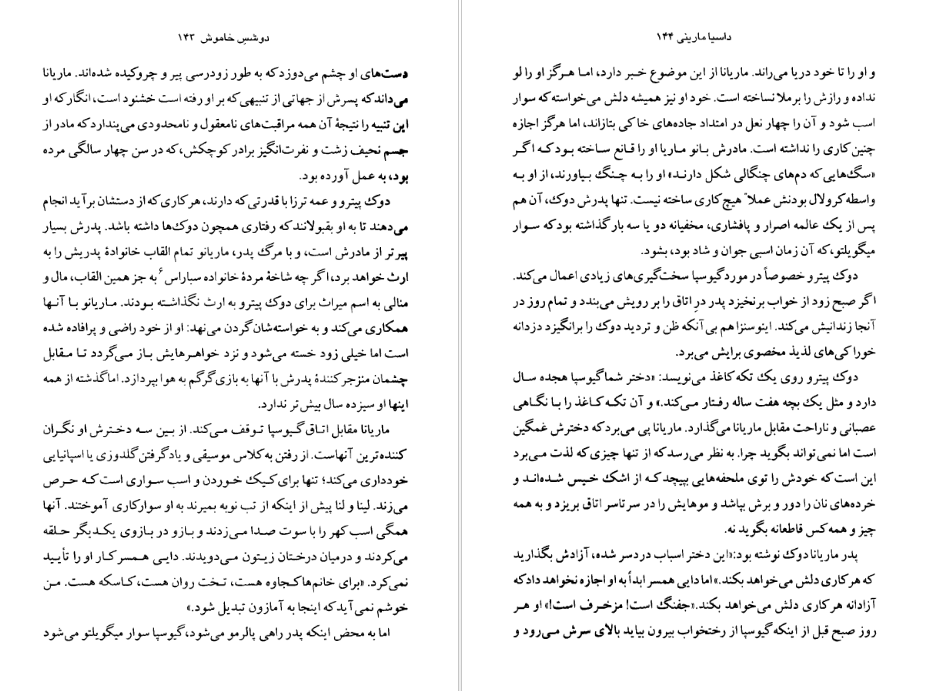 دوشسِ خاموش ۱۴۳
دست‌های او چشم می‌دوزد که به طور زودرسی پیر و چروکیده شده‌اند. ماریانا
می‌داند که پسرش از جهاتی از تنبیهی که بر او رفته است خشنود است، انگار که او
این تنبیه را نتیجهٔ آن همه مراقبت‌های نامعقول و نامحدودی می‌پندارد که مادر از
جسم نحیف زشت و نفرت‌انگیز برادر کوچکش، که در سن چهار سالگی مرده
بود، به عمل آورده بود.
دوک پیترو و عمه ترزا با قدرتی که دارند، هر کاری که از دستشان برآید انجام
می‌دهند تا به او بقبولانند که رفتاری همچون دوک‌ها داشته باشد. پدرش بسیار
پیرتر از مادرش است، و با مرگ پدر، ماریانو تمام القاب خانوادهٔ پدریش را به
ارث خواهد برد، اگر چه شاخهٔ مردهٔ خانواده سباراس۶ به جز همین القاب، مال و
منالی به اسم میراث برای دوک پیترو به ارث نگذاشته بودند. ماریانو با آنها
همکاری می‌کند و به خواسته‌شان گردن می‌نهد: او از خود راضی و پرافاده شده
است اما خیلی زود خسته می‌شود و نزد خواهرهایش باز می‌گردد تا مقابل
چشمان منزجرکنندهٔ پدرش با آنها به بازی گرگم به هوا بپردازد. اما گذشته از همه
اینها او سیزده سال بیش‌تر ندارد.
ماریانا مقابل اتاق گیوسپا توقف می‌کند. از بین سه دخترش او نگران
کننده‌ترین آنهاست. از رفتن به کلاس موسیقی و یادگرفتن گلدوزی یا اسپانیایی
خودداری می‌کند؛ تنها برای کیک خوردن و اسب سواری است که حرص
می‌زند. لینا و لنا پیش از اینکه از تب نوبه بمیرند به او سوارکاری آموختند. آنها
همگی اسب کهر را با سوت صدا می‌زدند و بازو در بازوی یکدیگر حلقه
می‌کردند و درمیان درختان زیتون می‌دویدند. دایی همسر کار او را تأیید
نمی‌کرد. «برای خانم‌ها کجاوه هست، تخت روان هست، کاسکه هست. من
خوشم نمی‌آید که اینجا به آمازون تبدیل شود.»
اما به محض اینکه پدر راهی پالرمو می‌شود، گیوسپا سوار میگویلتو می‌شود
داسیا مارینی ۱۴۴
و او را تا خود دریا می‌راند. ماریانا از این موضوع خبر دارد، اما هرگز او را لو
نداده و رازش را برملا نساخته است. خود او نیز همیشه دلش می‌خواسته که سوار
اسب شود و آن را چهار نعل در امتداد جاده‌های خاکی بتازاند، اما هرگز اجازه
چنین کاری را نداشته است. مادرش بانو ماریا او را قانع ساخته بود که اگر
«سگ‌هایی که دم‌های چنگالی شکل دارند» او را به چنگ بیاورند، از او به
واسطه کرولال بودنش عملاً هیچ کاری ساخته نیست. تنها پدرش دوک، آن هم
پس از یک عالمه اصرار و پافشاری، مخفیانه دو یا سه بار گذاشته بود که سوار
میگویلتو، که آن زمان اسبی جوان و شاد بود، بشود.
دوک پیترو خصوصاً در مورد گیوسپا سخت‌گیری‌های زیادی اعمال می‌کند.
اگر صبح زود از خواب برنخیزد پدر درِ اتاق را بر رویش می‌بندد و تمام روز در
آنجا زندانیش می‌کند. اینوسنزا هم بی‌آنکه ظن و تردید دوک را برانگیزد دزدانه
خوراکی‌های لذیذ مخصوی برایش می‌برد.
دوک پیترو روی یک تکه کاغذ می‌نویسد: «دختر شما گیوسپا هجده سال
دارد و مثل یک بچه هفت ساله رفتار می‌کند.» و آن تکه کاغذ را با نگاهی
عصبانی و ناراحت مقابل ماریانا می‌گذارد. ماریانا پی می‌برد که دخترش غمگین
است اما نمی‌تواند بگوید چرا. به نظر می‌رسد که از تنها چیزی که لذت می‌برد
این است که خودش را توی ملحفه‌هایی بپیچد که از اشک خیس شده‌اند و
خرده‌های نان را دور و برش بپاشد و موهایش را در سرتاسر اتاق بریزد و به همه
چیز و همه کس قاطعانه بگوید نه.
پدر ماریانا دوک نوشته بود: «این دختر اسباب دردسر شده، آزادش بگذارید
که هر کاری دلش می‌خواهد بکند.» اما دایی همسر ابداً به او اجازه نخواهد داد که
آزادانه هر کاری دلش می‌خواهد بکند. «جفنگ است! مزخرف است!» او هر
روز صبح قبل از اینکه گیوسپا از رختخواب بیرون بیاید بالای سرش می‌رود و